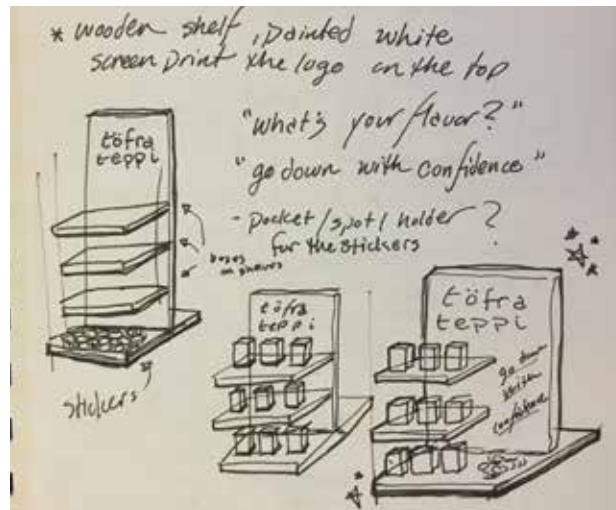 * wooden shelf, painted white
screen print the logo on the top
"what's your flavor?"
"go down with confidence"
- pocket / spot / holder ?
for the stickers
töfra
teppi
boxes
on shelves
stickers
töfra
teppi
töfra
teppi
go down
with
confidence